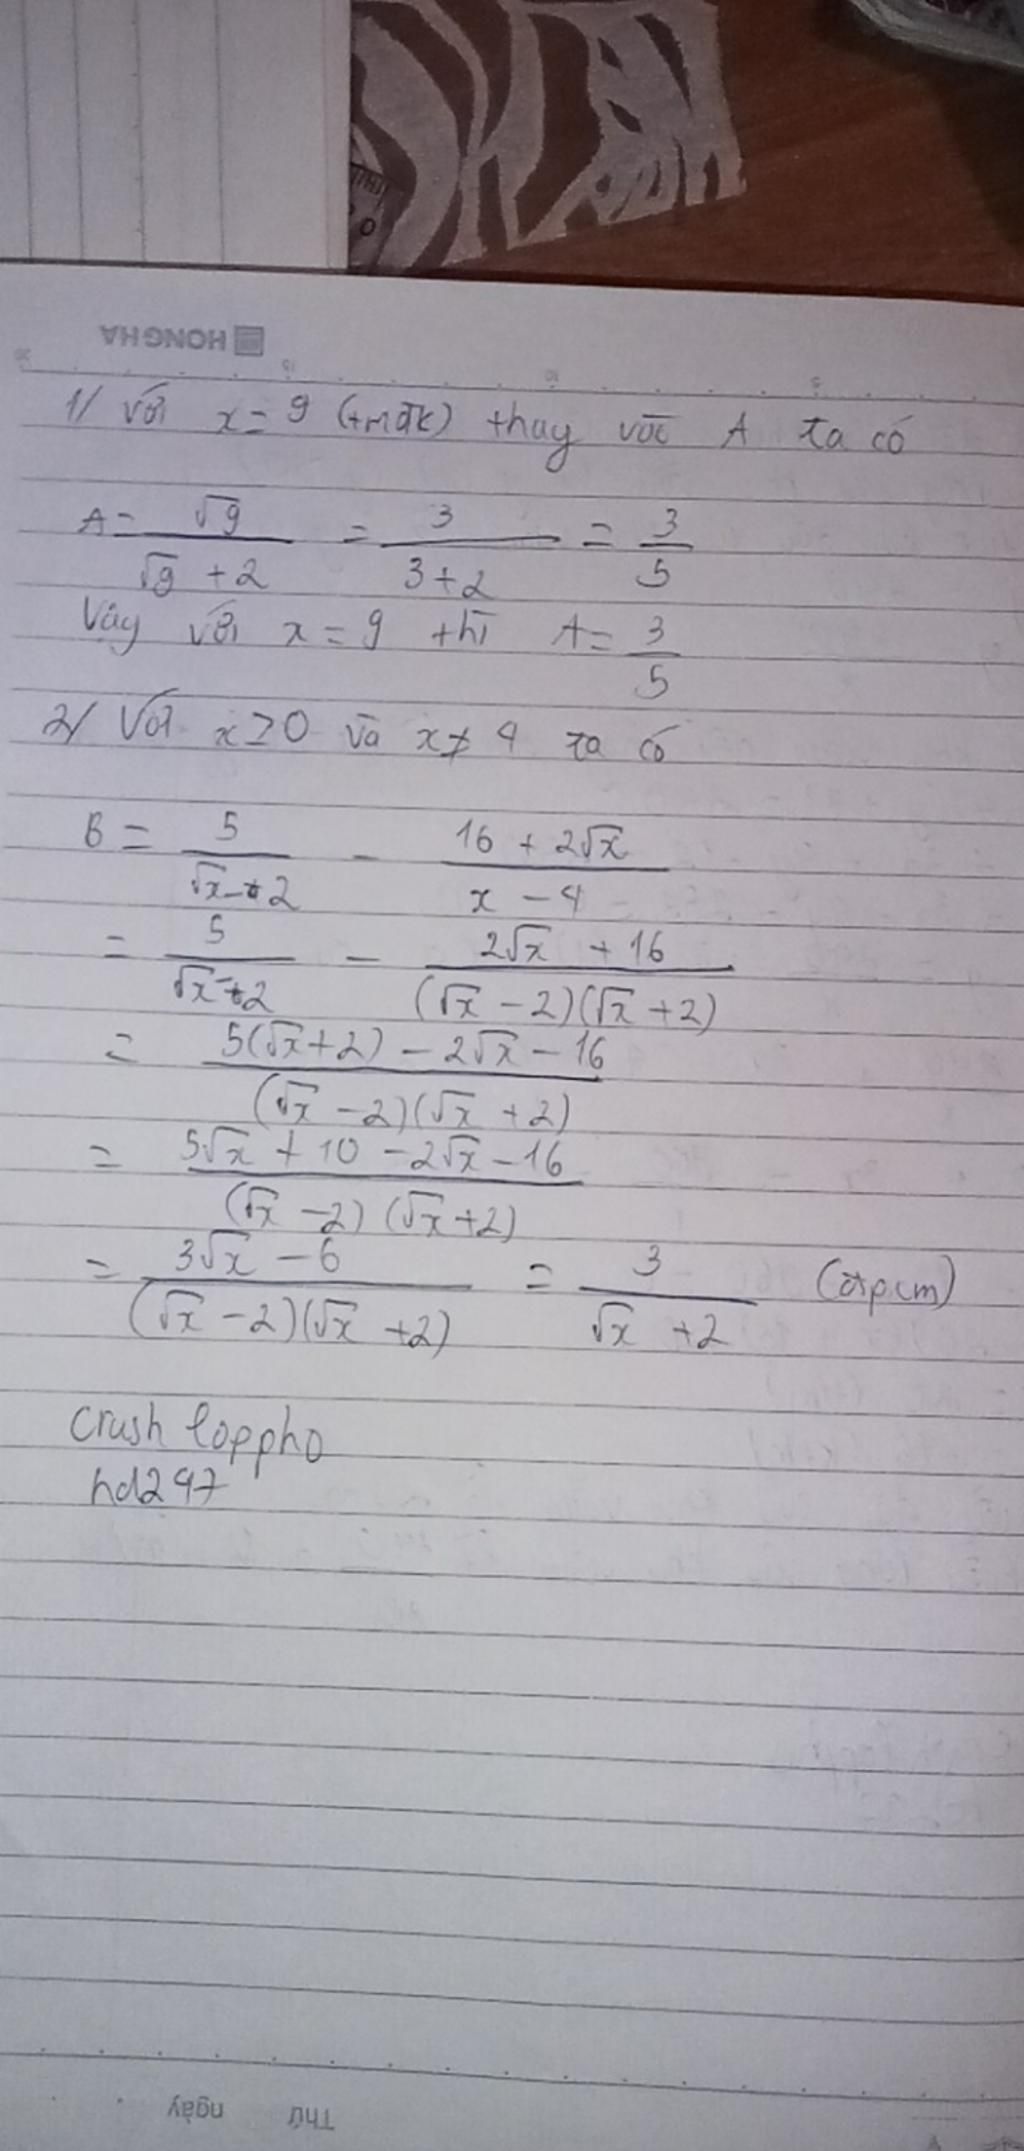 HONG HA
1/ Với x = 9 (tmđk) thay vào A ta có
A = √9 / (√9 + 2) = 3 / (3 + 2) = 3/5
Vậy với x = 9 thì A = 3/5
2/ Với x ≥ 0 và x ≠ 4 ta có
B = 5 / (√x - 2) - (16 + 2√x) / (x - 4)
= 5 / (√x - 2) - (2√x + 16) / ((√x - 2)(√x + 2))
= (5(√x + 2) - 2√x - 16) / ((√x - 2)(√x + 2))
= (5√x + 10 - 2√x - 16) / ((√x - 2)(√x + 2))
= (3√x - 6) / ((√x - 2)(√x + 2)) = 3 / (√x + 2) (đpcm)
crush loppho
hd247
Thứ ngày